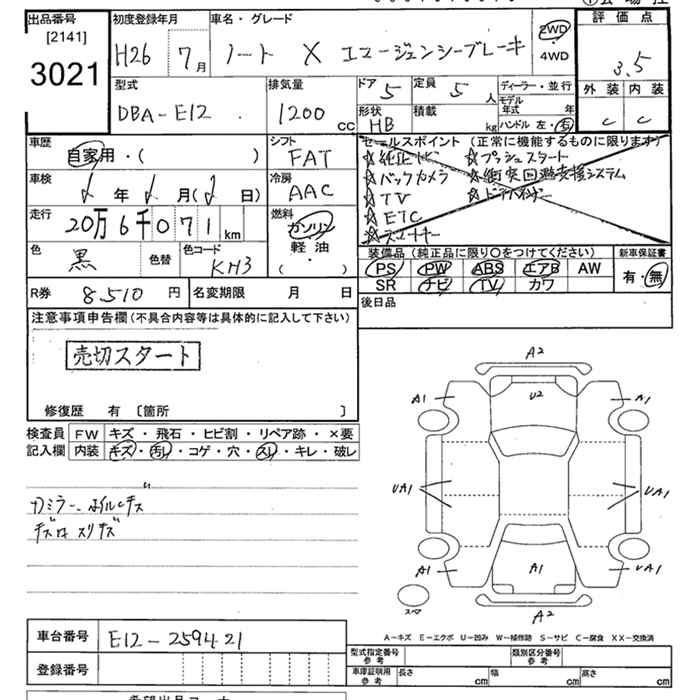 出品番号
[2141]
3021
初度登録年月
H26 7月
車名・グレード
ノート X エマージェンシーブレーキ
2WD
4WD
評価点
3.5
外装 内装
C C
型式
DBA-E12
排気量
1200 cc
ドア 5
定員 5 人
形状 HB
積載 kg
ディーラー・並行
モデル年式 年
ハンドル 左・右
車歴
自家用・( )
シフト
FAT
車検
年 月( 日)
冷房
AAC
走行
20万6千071 km
燃料
ガソリン
軽油
( ・ )
色
黒
色替
色コード
KH3
セールスポイント (正常に機能するものに限ります)
☆純正ナビ ☆プッシュスタート
☆バックカメラ ☆衝突回避支援システム
☆TV ☆ドアバイザー
☆ETC
☆スマートキー
装備品 (純正品に限り○をつけてください)
PS PW ABS エアB AW
SR ナビ TV カワ
新車保証書
有・無
R券 8510 円 名変期限 月 日
後日品
注意事項申告欄(不具合内容等は具体的に記入して下さい)
売切スタート
修復歴 有 〔箇所 〕
検査員記入欄
FW キズ・飛石・ヒビ割・リペア跡・×要
内装 キズ・汚レ・コゲ・穴・スレ・キレ・破レ
ガミラー、ホイルキズ
キズはスリキズ
A2
U2
A1
A1
UA1
UA1
A1
A1
UA1
A2
スペア
A-キズ E-エクボ U-凹み W-補修跡 S-サビ C-腐食 XX-交換済
車台番号 E12-259421
登録番号
型式指定番号 参考
類別区分番号 参考
車庫証明用 参考 長さ cm 幅 cm 高さ cm